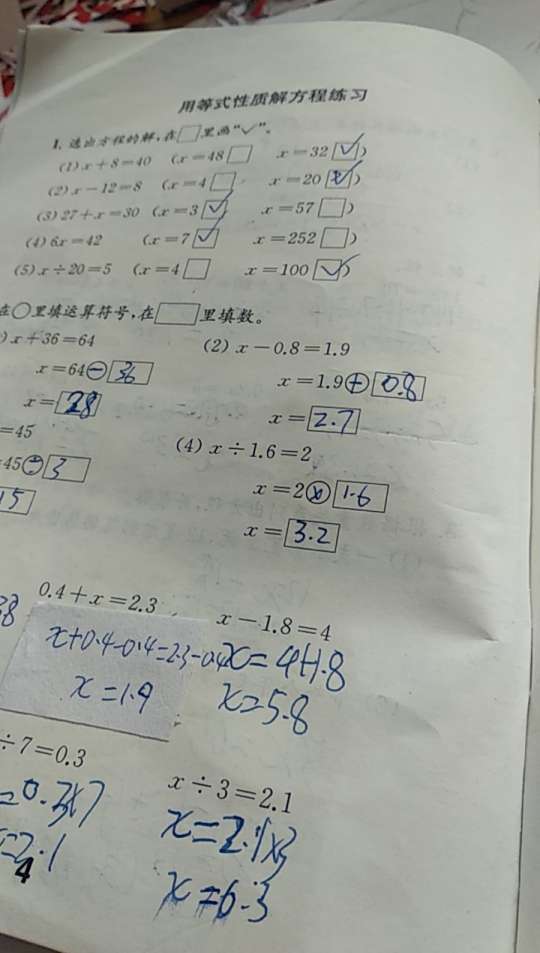 用等式性质解方程练习
1. 选出方程的解,在□里画“✓”。
(1) x+8=40 (x=48 □ x=32 ☑)
(2) x-12=8 (x=4 □ x=20 ☑)
(3) 27+x=30 (x=3 ☑ x=57 □)
(4) 6x=42 (x=7 ☑ x=252 □)
(5) x÷20=5 (x=4 □ x=100 ☑)
在○里填运算符号,在□里填数。
) x+36=64 (2) x-0.8=1.9
x=64⊖36 x=1.9⊕0.8
x=28 x=2.7
=45 (4) x÷1.6=2
45÷3 x=2⊗1.6
15 x=3.2
0.4+x=2.3 x-1.8=4
x+0.4-0.4=2.3-0.4 x=4+1.8
x=1.9 x=5.8
÷7=0.3 x÷3=2.1
=0.3×7 x=2.1×3
=2.1 x=6.3
4